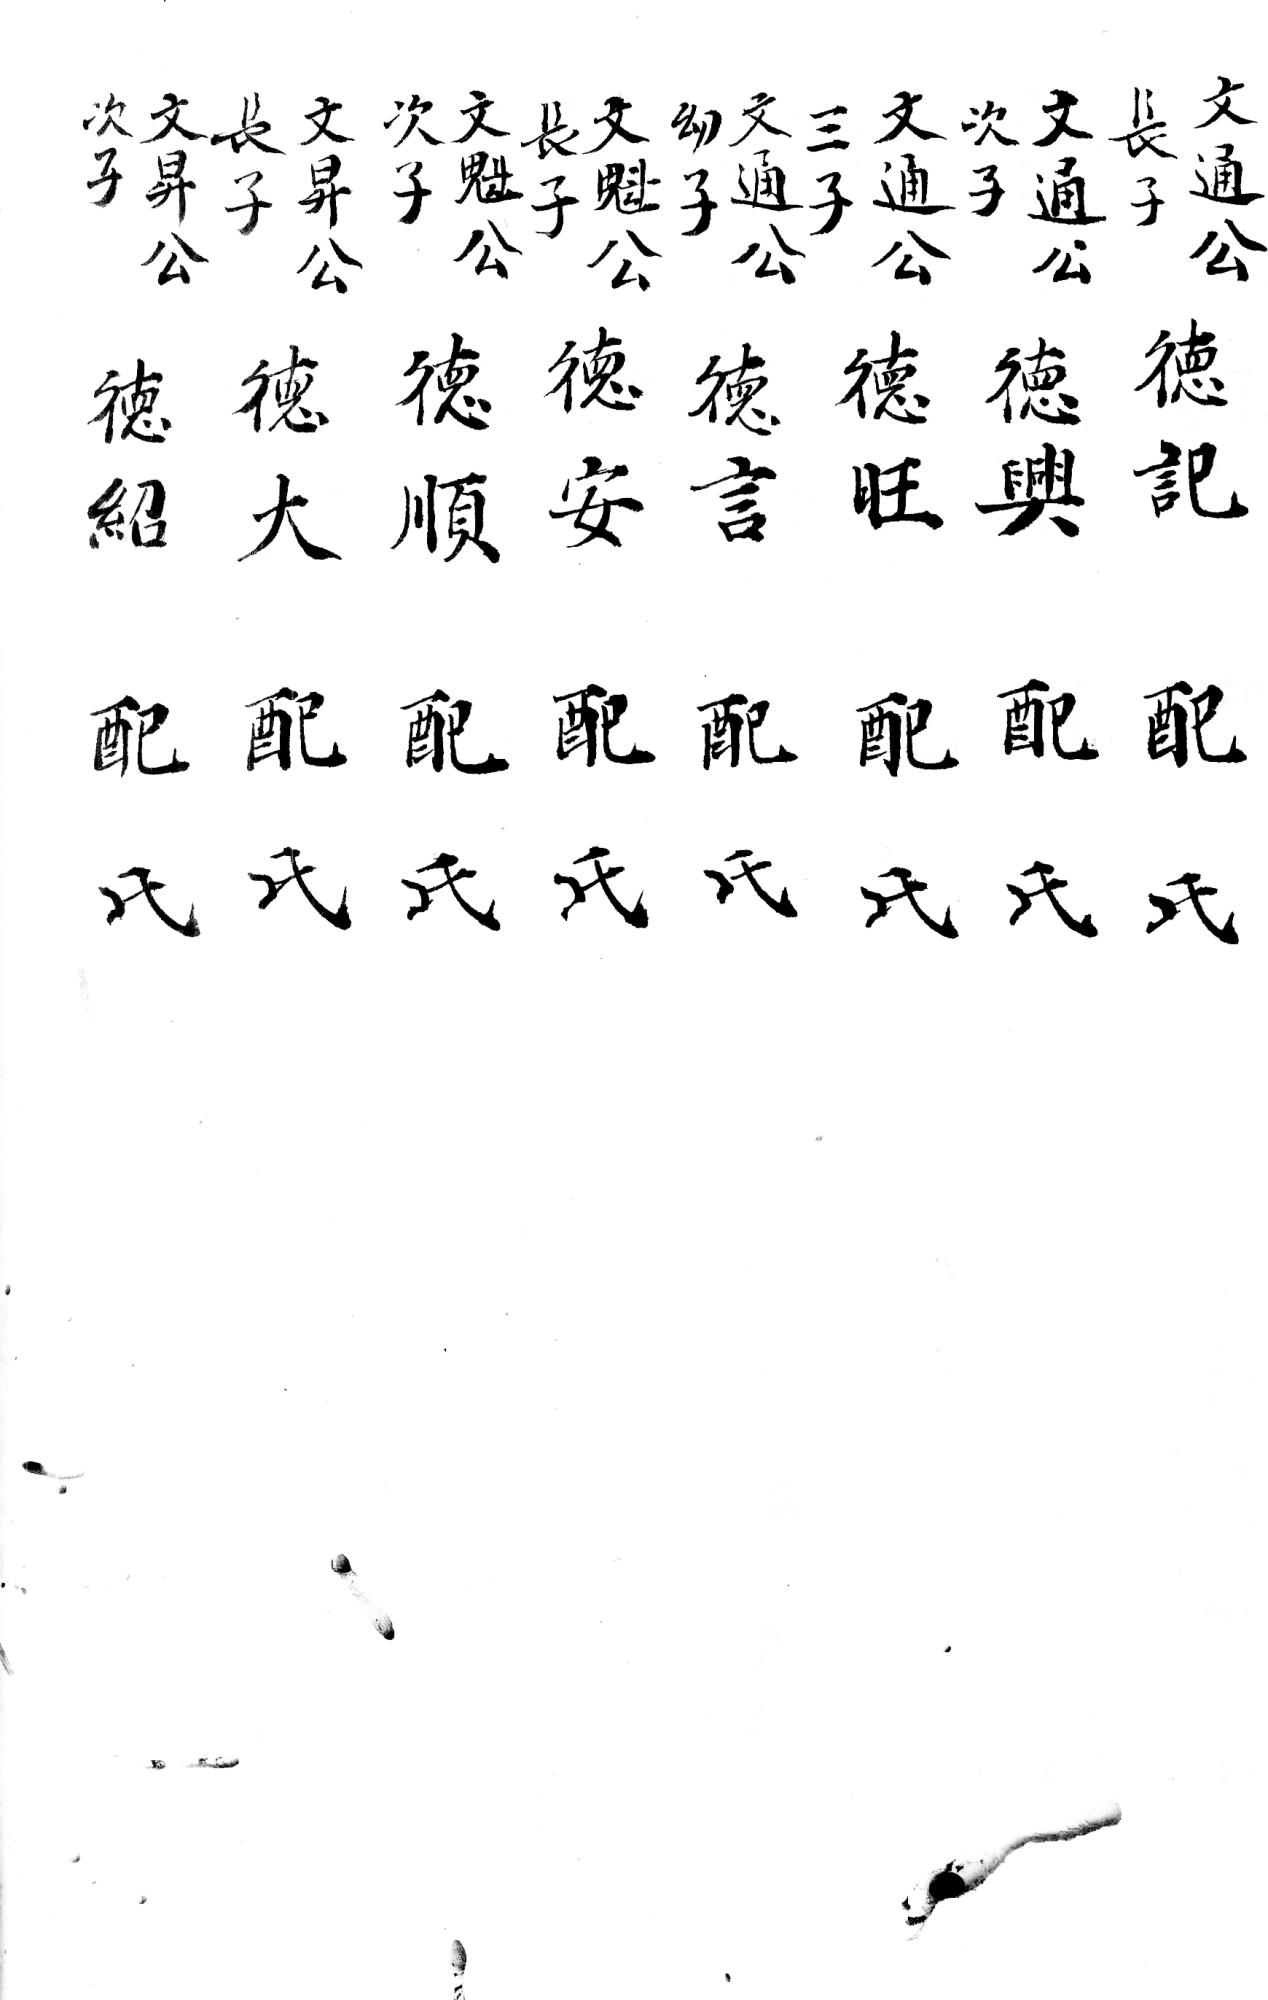 文通公長子 德記 配 氏
文通公次子 德興 配 氏
文通公三子 德旺 配 氏
文通公幼子 德言 配 氏
文魁公長子 德安 配 氏
文魁公次子 德順 配 氏
文昇公長子 德大 配 氏
文昇公次子 德紹 配 氏